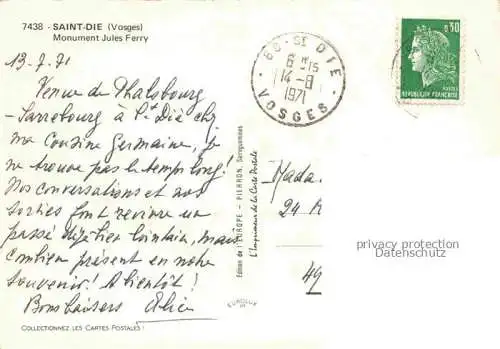 7438 - SAINT-DIE (Vosges)
Monument Jules Ferry
13.7.71
Venue de Phalsbourg
-Sarrebourg à St Dié chez
ma Cousine Germaine, je
ne trouve pas le temps long!
Nos conversations et nos
sorties font revivre un
passé déjà bien lointain, mais
combien présent en notre
souvenir! A bientôt!
Bons baisers Alice
COLLECTIONNEZ LES CARTES POSTALES !
Edition de l'EUROPE - PIERRON, Sarreguemines
L'Imprimeur de la Carte Postale
EUROLUX
88 - ST DIE
6H15
14-8
1971
VOSGES
0,30
POSTES
REPUBLIQUE FRANÇAISE
Mada
24
49
privacy protection
Datenschutz